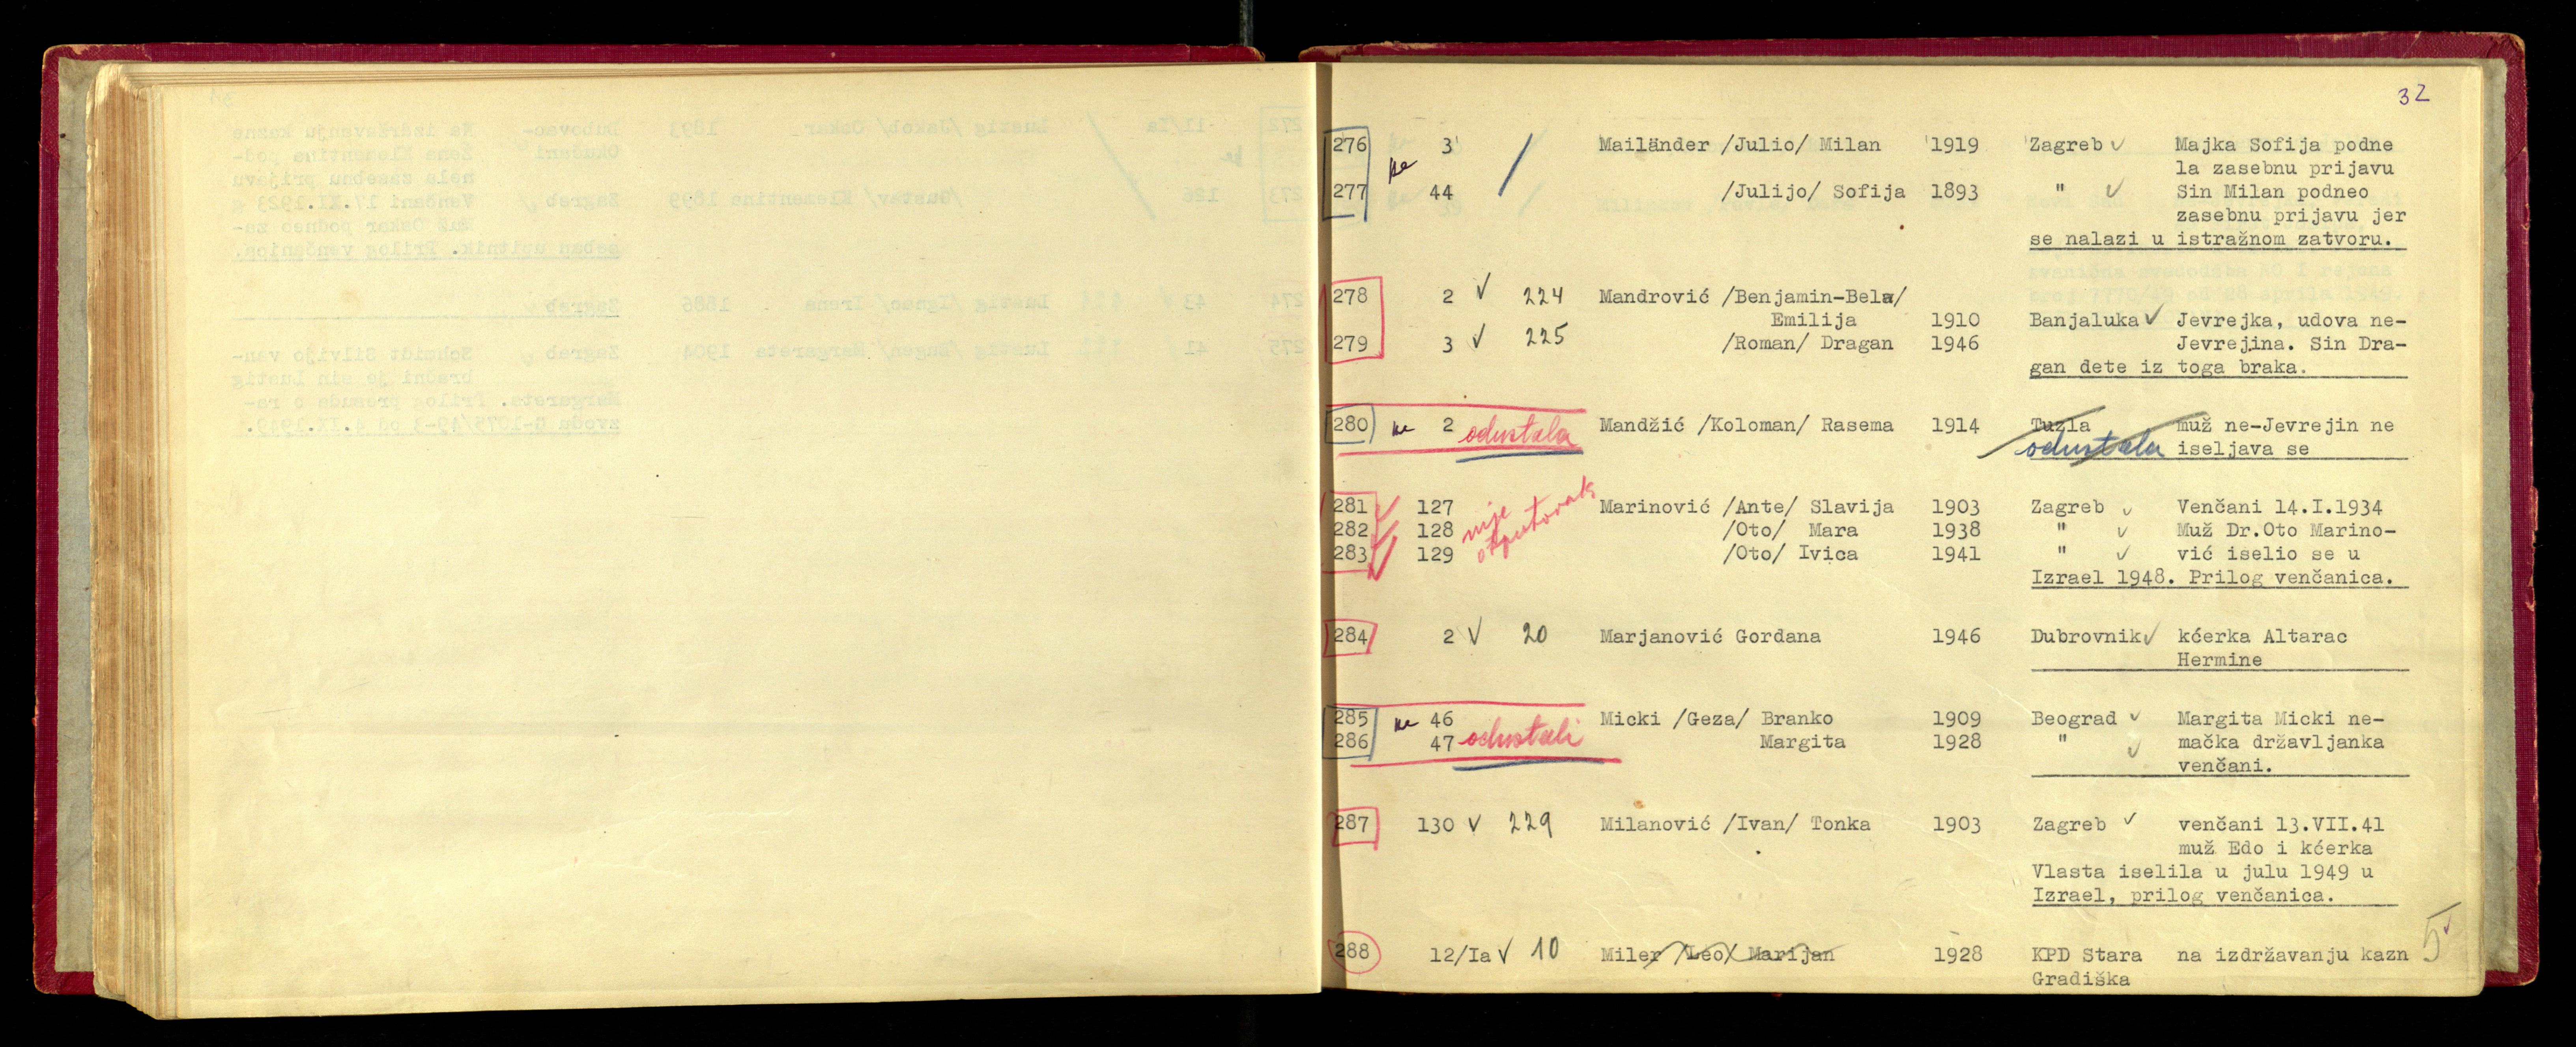 32
276 ne 3 / Mailänder /Julio/ Milan 1919 Zagreb ✓ Majka Sofija podne
la zasebnu prijavu
277 44 /Julijo/ Sofija 1893 " ✓ Sin Milan podneo
zasebnu prijavu jer
se nalazi u istražnom zatvoru.
278 2 ✓ 224 Mandrović /Benjamin-Bela/
Emilija 1910 Banjaluka ✓ Jevrejka, udova ne-
279 3 ✓ 225 /Roman/ Dragan 1946 Jevrejina. Sin Dra-
gan dete iz toga braka.
280 ne 2 odustala Mandžić /Koloman/ Rasema 1914 Tuzla muž ne-Jevrejin ne
odustala iseljava se
281 ✓ 127 nije Marinović /Ante/ Slavija 1903 Zagreb ✓ Venčani 14.I.1934
282 ✓ 128 otputovala /Oto/ Mara 1938 " ✓ Muž Dr.Oto Marino-
283 ✓ 129 /Oto/ Ivica 1941 " ✓ vić iselio se u
Izrael 1948. Prilog venčanica.
284 2 ✓ 20 Marjanović Gordana 1946 Dubrovnik ✓ kćerka Altarac
Hermine
285 ne 46 Micki /Geza/ Branko 1909 Beograd ✓ Margita Micki ne-
286 47 odustali Margita 1928 " ✓ mačka državljanka
venčani.
287 130 ✓ 229 Milanović /Ivan/ Tonka 1903 Zagreb ✓ venčani 13.VII.41
muž Edo i kćerka
Vlasta iselila u julu 1949 u
Izrael, prilog venčanica.
288 12/Ia ✓ 10 Miler /Leo/ Marijan 1928 KPD Stara na izdržavanju kazn
Gradiška
5 ✓